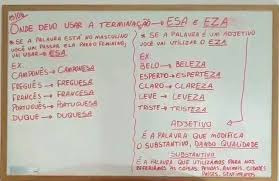 ONDE DEVO USAR A TERMINAÇÃO → ESA E EZA
* SE A PALAVRA ESTÁ NO MASCULINO
VOCÊ VAI PASSAR ELA PARA O FEMININO,
VAI USAR → ESA.
EX.
CAMPONÊS → CAMPONESA
FREGUÊS → FREGUESA
FRANCÊS → FRANCESA
PORTUGUÊS → PORTUGUESA
DUQUE → DUQUESA
* SE A PALAVRA É UM ADJETIVO
VOCÊ VAI UTILIZAR O EZA.
EX:
BELO → BELEZA
ESPERTO → ESPERTEZA
CLARO → CLAREZA
LEVE → LEVEZA
TRISTE → TRISTEZA
ADJETIVO
É A PALAVRA QUE MODIFICA
O SUBSTANTIVO, DANDO QUALIDADE
SUBSTANTIVO
É A PALAVRA QUE UTILIZAMOS PARA NOS
REFERIRMOS ÀS COISAS, PESSOAS, ANIMAIS, CIDADES
PAÍSES, SENTIMENTOS